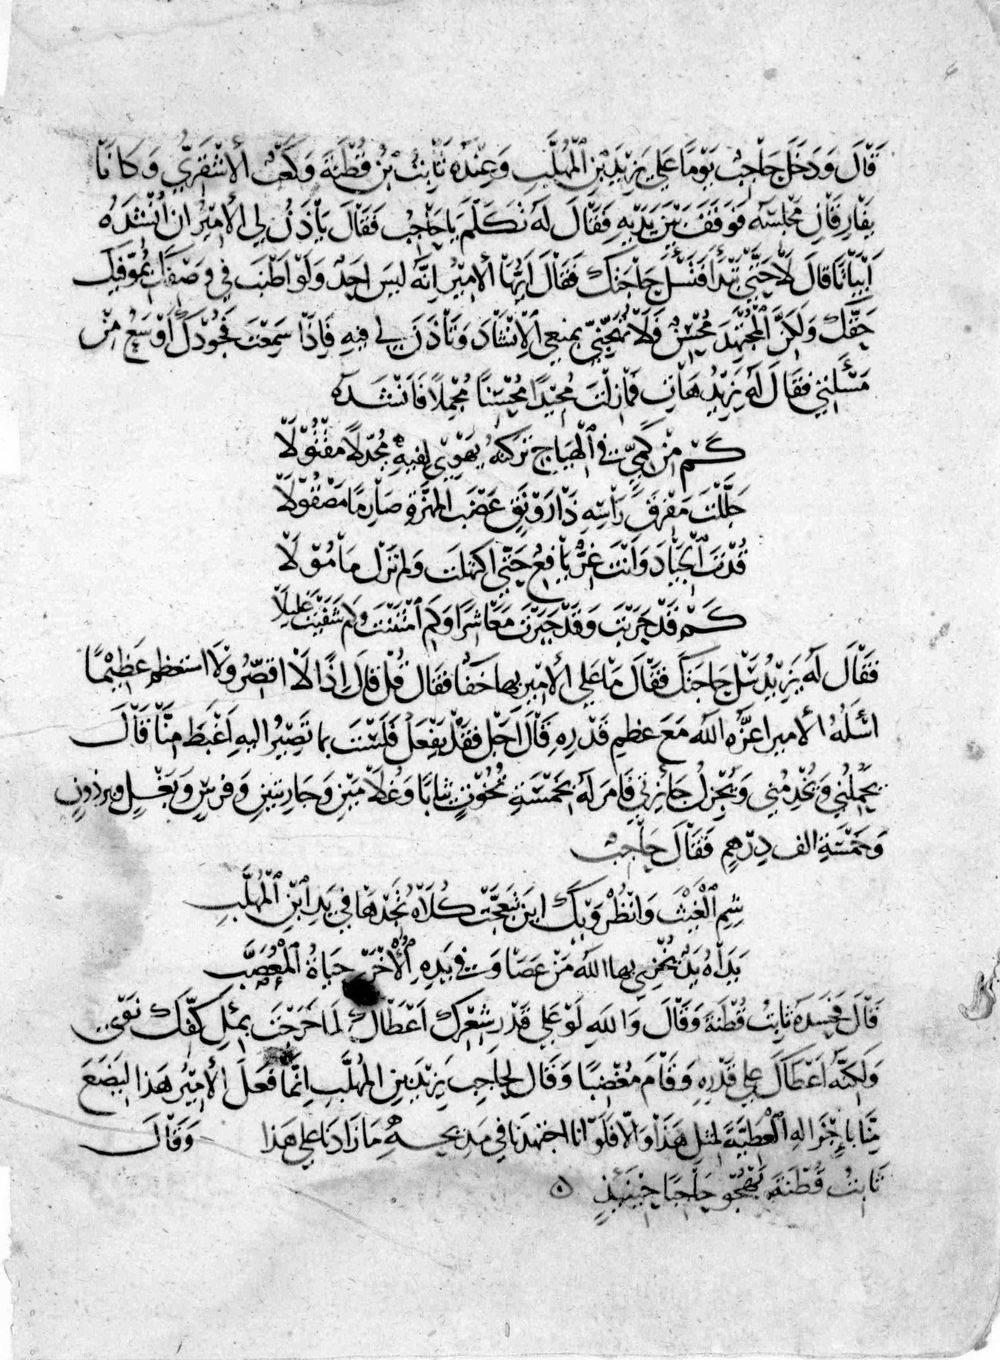 قَالَ وَدَخَلَ حَاجِبٌ يَوْمًا عَلَى يَزِيدَ بْنِ الْمُهَلَّبِ وَعِنْدَهُ ثَابِتُ بْنُ قُطْنَةَ وَكَعْبٌ الْأَشْقَرِيُّ وَكَانَا
يُفَارِقَانِ مَجْلِسَهُ فَوَقَفَ بَيْنَ يَدَيْهِ فَقَالَ لَهُ تَكَلَّمْ يَا حَاجِبُ فَقَالَ يَأْذَنُ لِي الْأَمِيرُ ان انْشُدَهُ
أَبْيَاتًا قَالَ لَا حَتَّى تَبْدَأَ فَتَسْئَلَ حَاجَتَكَ فَقَالَ أَيُّهَا الْأَمِيرُ إِنَّهُ لَيْسَ احَدٌ وَلَوْ اطْنَبَ فِي وَصْفِكَ بِمُوَفِّيكَ
حَقَّكَ وَلَكِنَّ الْمُجْتَهِدَ مُحْسِنٌ فَلَا تُهِجْنِي بِمَنْعِي الْإِنْشَادَ وَتَأْذَنُ لِي فِيهِ فَإِذَا سَمِعْتَ فَجُودُكَ أَوْسَعُ مِنْ
مَسْئَلَتِي فَقَالَ لَهُ يَزِيدُ هَاتِ فَمَا زِلْتَ مُجِيدًا مُحْسِنًا مُجْمِلًا فَانْشَدَهُ
كَمْ مِنْ كَمِيٍّ فِي الْهِيَاجِ تَرَكْتَهُ يَهْوِي لِفِيهِ مُجَدَّلًا مَقْتُولَا
جَلَّلْتَ مَفْرِقَ رَأْسِهِ ذَا رَوْنَقٍ عَضْبَ الْمَهَزَّةِ صَارِمًا مَصْقُولَا
قُدْتَ الْجِيَادَ وَأَنْتَ غِرٌّ يَافِعٌ حَتَّى اكْتَهَلْتَ وَلَمْ تَزَلْ مَأْمُولَا
كَمْ قَدْ حَرَبْتَ وَقَدْ جَبَرْتَ مَعَاشِرًا وَكَمِ امْتَنَنْتَ وَكَمْ شَفَيْتَ غَلِيلَا
فَقَالَ لَهُ يَزِيدُ سَلْ حَاجَتَكَ فَقَالَ مَا عَلَى الْأَمِيرِ بِهَا خَفَا فَقَالَ قُلْ قَالَ إِذًا لَا اقَصِّرُ وَلَا اسْتَعْظِمُ عَظِيمًا
اسْئَلُهُ الْأَمِيرَ اعَزَّهُ اللَّهُ مَعَ عِظَمِ قَدْرِهِ قَالَ أَجَلْ فَقُلْ يُفْعَلْ فَلَسْتَ بِمَا تَصِيرُ الَيْهِ أَغْبَطَ مِنَّا قَالَ
تَحْمِلُنِي وَتُخْدِمُنِي وَتُجْزِلُ جَائِزَتِي فَامَرَ لَهُ بِخَمْسَةِ تُخُوتٍ ثِيَابًا وَغُلَامَيْنِ وَجَارِيَتَيْنِ وَفَرَسٍ وَبَغْلٍ وَبِرْذَوْنٍ
وَخَمْسَةِ الفِ دِرْهَمٍ فَقَالَ حَاجِبٌ
شِمِ الْغَيْثَ وَانْظُرْ وَيْكَ ايْنَ تَبَعَّجَتْ كُلَاهُ تَجِدْهَا فِي يَدِ ابْنِ الْمُهَلَّبِ
يَدَاهُ يَدٌ يُخْزِي بِهَا اللَّهُ مَنْ عَصَا وَفِي يَدِهِ الْأُخْرَى حَيَاةُ الْمُعَصَّبِ
قَالَ فَحَسَدَهُ ثَابِتُ قُطْنَةَ وَقَالَ وَاللَّهِ لَوْ عَلَى قَدْرِ شِعْرِكَ اعْطَاكَ لَمَا خَرَجْتَ بِمِثْلِ كَفِّكَ نَوًى
وَلَكِنَّهُ اعْطَاكَ عَلَى قَدْرِهِ وَقَامَ مُغْضَبًا وَقَالَ لِحَاجِبٍ يَزِيدُ بْنُ الْمُهَلَّبِ إِنَّمَا فَعَلَ الْأَمِيرُ هَذَا لِيَضَعَ
مِنَّا بِإِجْزَالِهِ الْعَطِيَّةَ لِمِثْلِ هَذَا وَإِلَّا فَلَوْ انَّا اجْتَهَدْنَا فِي مَدِيحِهِ مَا زَادَنَا عَلَى هَذَا وَقَالَ
ثَابِتُ قُطْنَةَ يَهْجُو حَاجِبًا حِينَئِذٍ ه